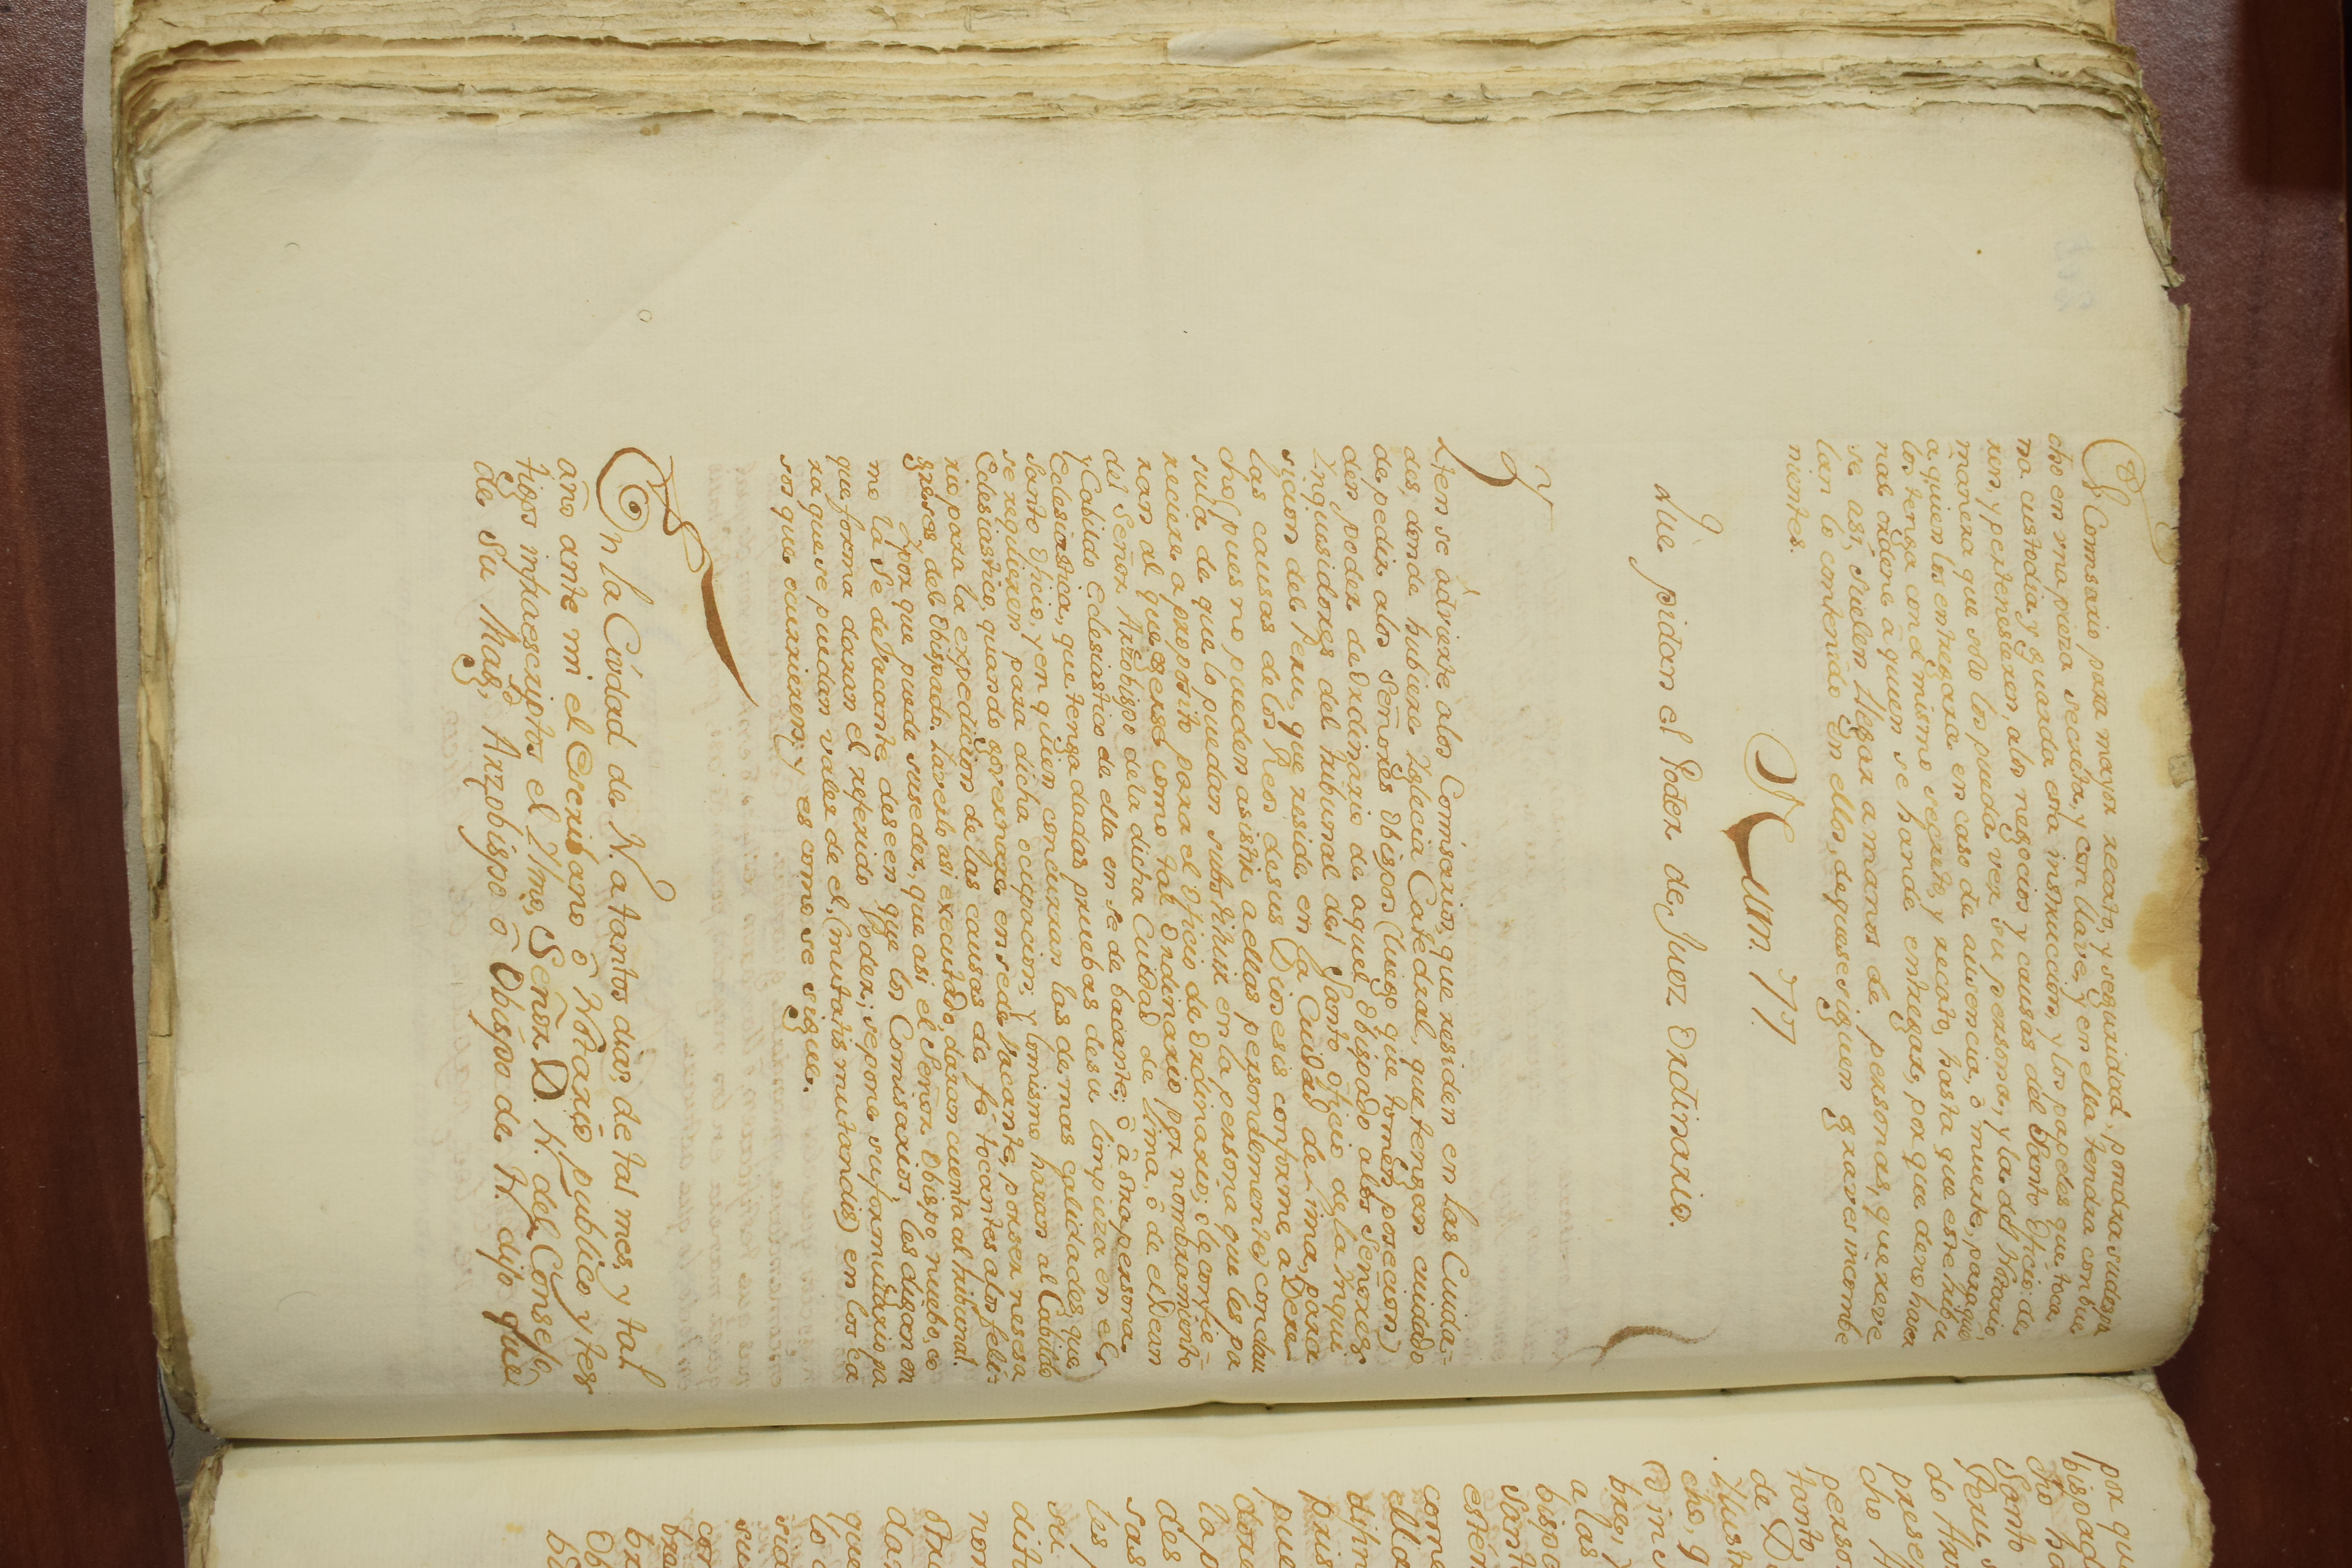 El Comisario para mayor recato, y seguridad, pondra su despa
cho en una pieza secreta, y con llave, y en ella tendra con bue
na custodia, y guarda esta instruccion, y los papeles que toca
ren, y pertenesieren, a los negocios y causas del Santo Oficio: de
manera que solo los pueda ver su persona, y la del Notario,
a quien los entregara en caso de ausencia, ô muerte, para que
los tenga con el mismo secreto, y recato, hasta que este tribu
nal ordene â quien se han de entregar, por que de no hacer
se asi, suelen llegar a manos de personas, que reve
lan lo contenido en ellos, de que se siguen graves incombe
nientes.
Num. 77.
Que pidan el Poder de Juez Ordinario.
Y
Yten se advierte a los Comisarios, que residen en las Ciuda=
des, donde hubiere Yglecia Catedral, que tengan cuidado
de pedir a los Señores Obispos (luego que tomen poscecion)
den poder de Ordinario de aquel Obispado a los Señores
Ynquisidores del tribunal del Santo Oficio de la Ynqui
sicion del Peru, que reside en la Cuidad de Lima, para
las causas de los Reos de sus Diocesis conforme a Dere
cho (pues no pueden asistir a ellas personalmente) con clau
sula de que lo puedan substituir en la persona que les pa
reciere a proposito para el Oficio de Ordinario; ô le confie=
ran al que exerse como tal Ordinario por nombramiento
del Señor Arzobispo de la dicha Cuidad de Lima, ô de el Dean
y Cabildo Eclesiastico de ella en sede bacante; ô â otra persona
Eclesiastica, que tenga dadas pruebas de su limpieza en el
Santo Oficio, y en quien concurran las demas calidades, que
se requieren para dicha ocupacion; y lo mismo haran al Cabildo
Eclesiastico, quando governare en sede vacante, por ser nesesa
rio para la expedicion de las causas de fe tocantes a los feli=
greses del Obispado. Haciendo asi executado, daran cuenta al tribunal.
Y por que puede suseder, que asi el Señor Obispo nuebo, co
mo la Sede vacante deseen que los Comisarios, les digan en
que forma daran el referido Poder; se pone su formulario pa
ra que se puedan valer de el, (mutatis mutandis) en los ca
sos que ocurrieren; y es como se sigue.
En la Ciudad de N. a tantos dias, de tal mes, y tal
año ante mi el Escribano ô Notario publico y tes
tigos infraescriptos el Yllmo. Señor D. N. del Consejo
de Su Magd. Arzobispo ô Obispo de N. dijo que
por que
bispad
cho
Santo
Peru
do
prese
cho
perso
tanto
de D
Ylust
che, q
bre,
a las
bispo
Sant
com
ella
pue
la p
des
sas
les
su
dit
non
da
que
lo
su
con